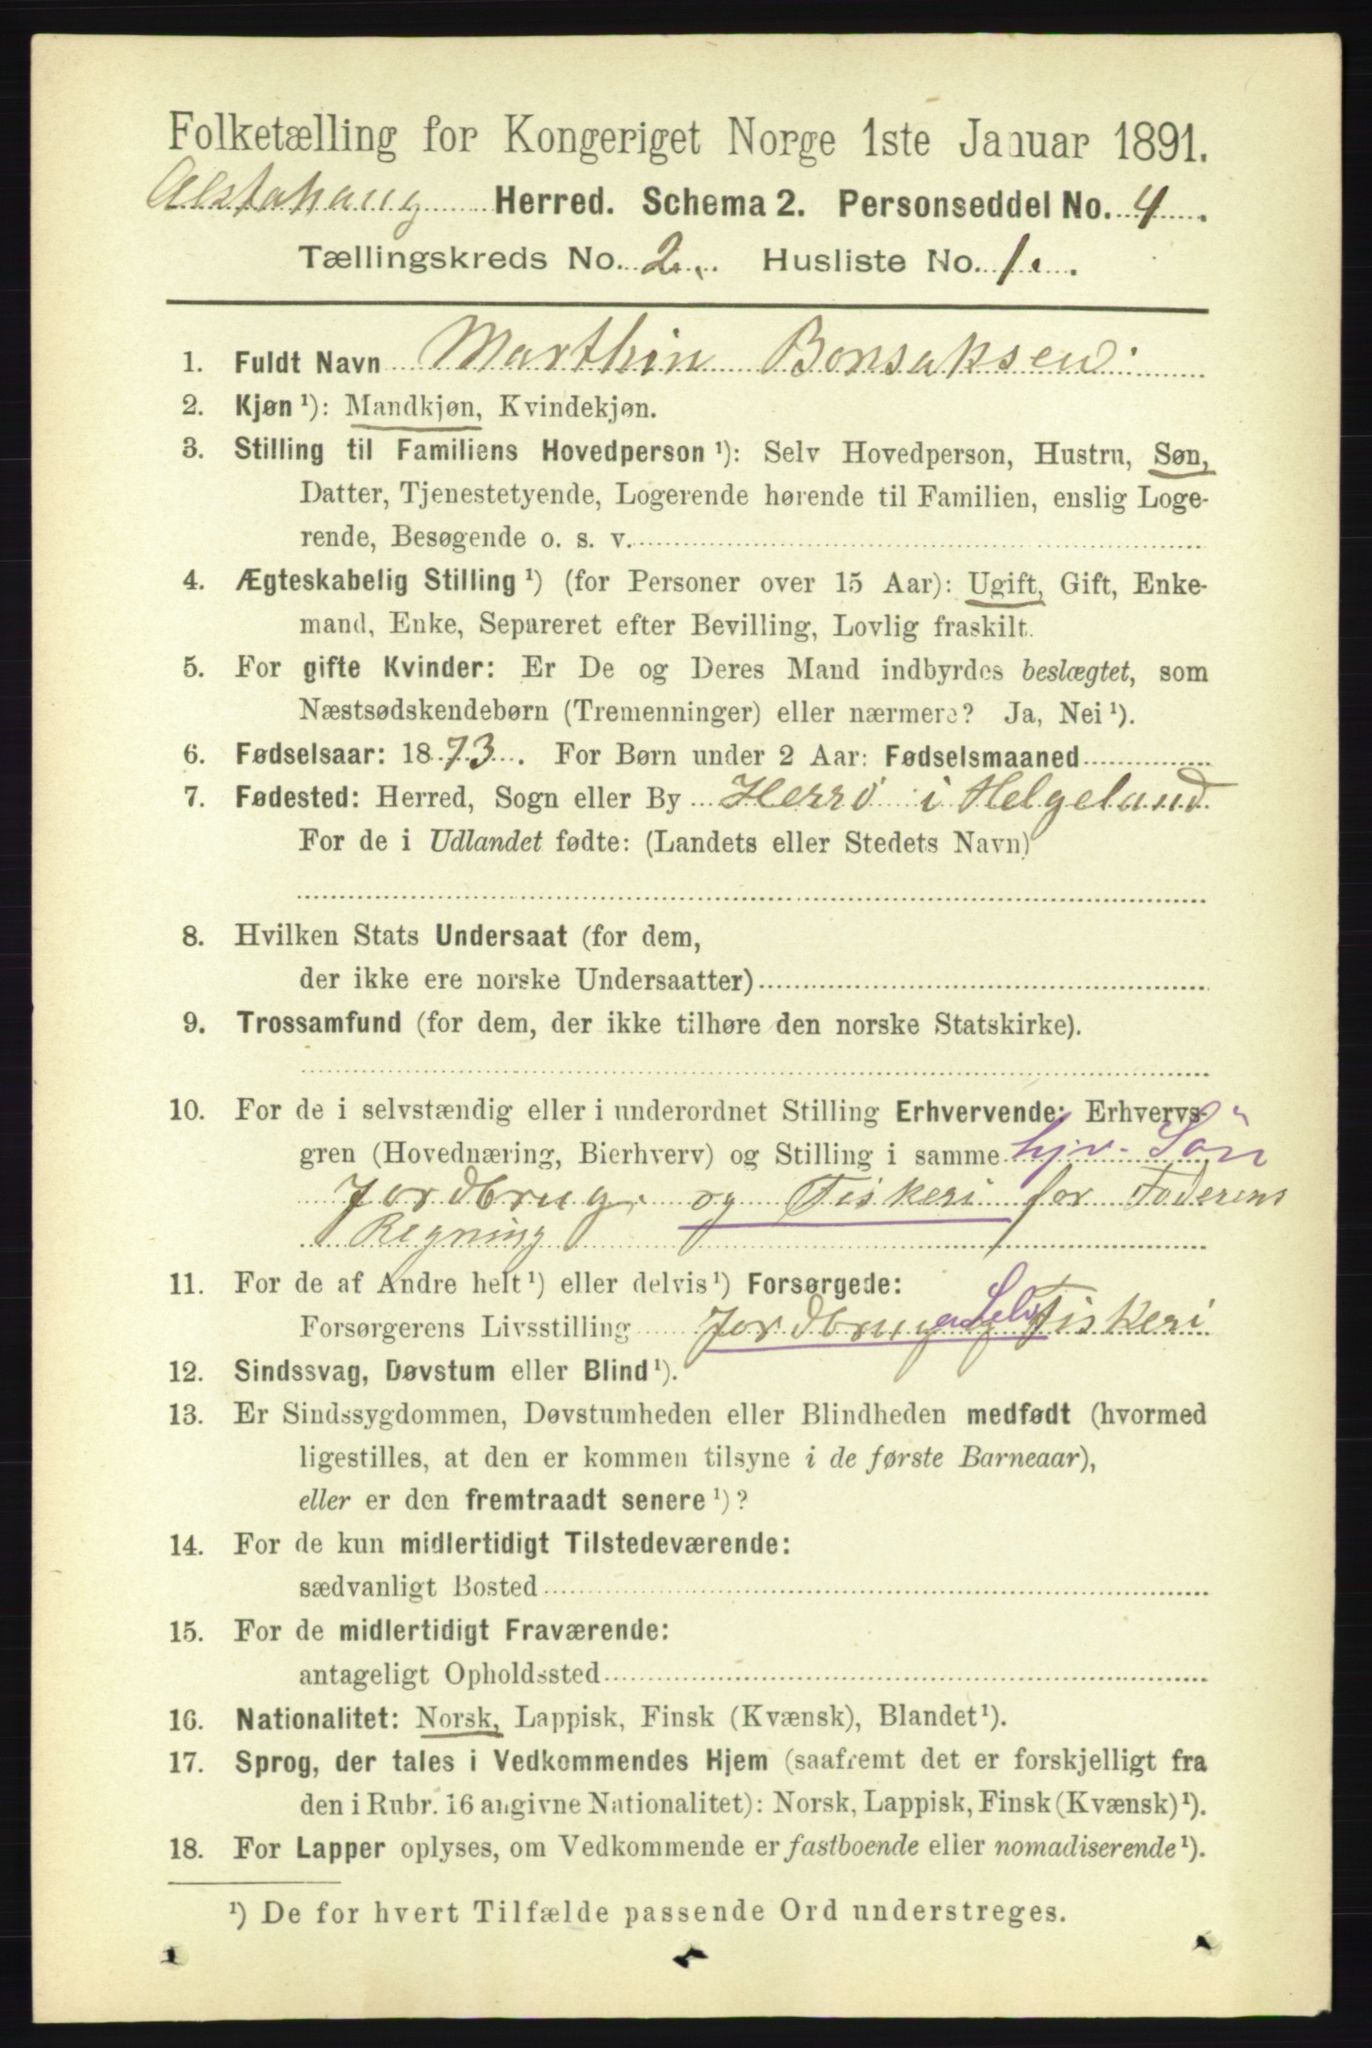 Folketælling for Kongeriget Norge 1ste Januar 1891.
Alstahaug Herred. Schema 2. Personseddel No. 4.
Tællingskreds No. 2. Husliste No. 1.
1. Fuldt Navn Marthin Bonsaksen
2. Kjøn ¹): Mandkjøn, Kvindekjøn.
3. Stilling til Familiens Hovedperson ¹): Selv Hovedperson, Hustru, Søn,
Datter, Tjenestetyende, Logerende hørende til Familien, enslig Loge-
rende, Besøgende o. s. v.
4. Ægteskabelig Stilling ¹) (for Personer over 15 Aar): Ugift, Gift, Enke-
mand, Enke, Separeret efter Bevilling, Lovlig fraskilt.
5. For gifte Kvinder: Er De og Deres Mand indbyrdes beslægtet, som
Næstsødskendebørn (Tremenninger) eller nærmere? Ja, Nei ¹).
6. Fødselsaar: 1873. For Børn under 2 Aar: Fødselsmaaned
7. Fødested: Herred, Sogn eller By Herrø i Helgeland
For de i Udlandet fødte: (Landets eller Stedets Navn)
8. Hvilken Stats Undersaat (for dem,
der ikke ere norske Undersaatter)
9. Trossamfund (for dem, der ikke tilhøre den norske Statskirke).
10. For de i selvstændig eller i underordnet Stilling Erhvervende: Erhvervs-
gren (Hovednæring, Bierhverv) og Stilling i samme hjv. Sön
Jordbrug og Fiskeri for Faderens
Regning
11. For de af Andre helt ¹) eller delvis ¹) Forsørgede:
Forsørgerens Livsstilling Jordbrug og Fiskeri
12. Sindssvag, Døvstum eller Blind ¹).
13. Er Sindssygdommen, Døvstumheden eller Blindheden medfødt (hvormed
ligestilles, at den er kommen tilsyne i de første Barneaar),
eller er den fremtraadt senere ¹)?
14. For de kun midlertidigt Tilstedeværende:
sædvanligt Bosted
15. For de midlertidigt Fraværende:
antageligt Opholdssted
16. Nationalitet: Norsk, Lappisk, Finsk (Kvænsk), Blandet ¹).
17. Sprog, der tales i Vedkommendes Hjem (saafremt det er forskjelligt fra
den i Rubr. 16 angivne Nationalitet): Norsk, Lappisk, Finsk (Kvænsk) ¹).
18. For Lapper oplyses, om Vedkommende er fastboende eller nomadiserende ¹).
¹) De for hvert Tilfælde passende Ord understreges.